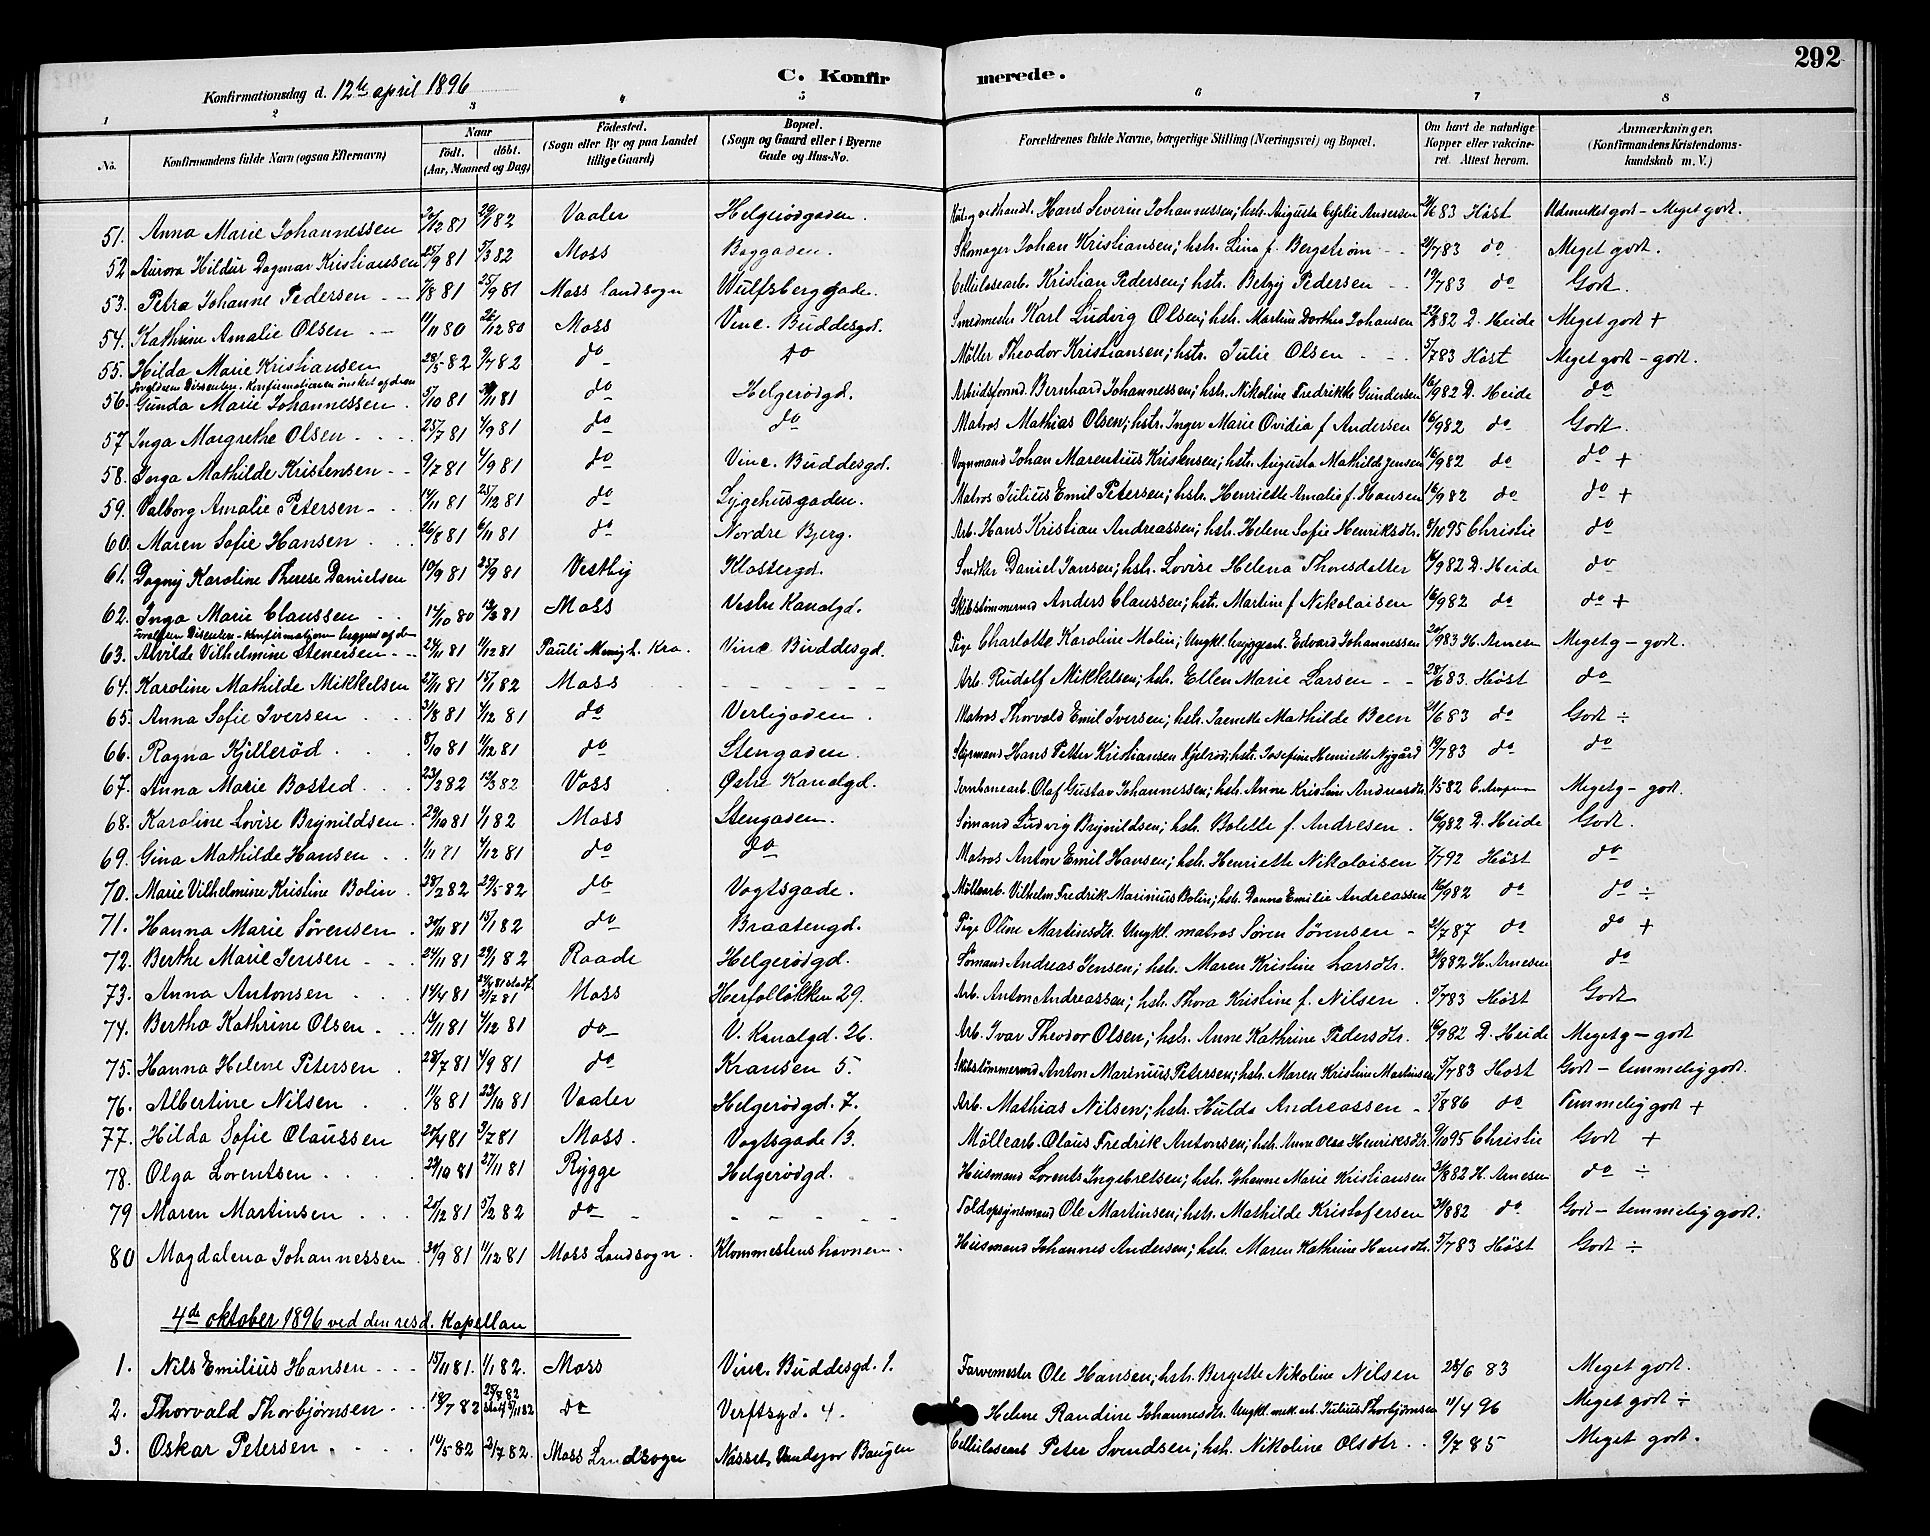 292
C. Konfirmerede.
Konfirmationsdag d. 12te april 1896
1 2 3 4 5 6 7 8
No. Konfirmandens fulde Navn (ogsaa Efternavn) Naar födt. döbt. (Aar, Maaned og Dag) Födested. (Sogn eller By og paa Landet tillige Gaard) Bopæl. (Sogn og Gaard eller i Byerne Gade og Hus-No. Forældrenes fulde Navne, borgerlige Stilling (Næringsvei) og Bopæl. Om havt de naturlige Kopper eller vakcineret. Attest herom. Anmærkninger. (Konfirmandens Kristendomskundskab m. V.)
51. Anna Marie Johannessen /12 81 /1 82 Vaaler Helgerödgaden. vedhandl. Hans Severin Johannessen; hstr. Augusta Andersen /6 83 Höst Udmerket godt - Meget godt.
52 Aurora Hildur Dagmar Kristiansen 25/9 81 5/3 82 Moss Baggaden. Skomager Johan Kristiansen; hstr. Lina f. Bergström - - /7 83 do Meget godt.
53. Petra Johanne Pedersen - - /8 81 25/9 81 Moss landsogn Wulfsberggade. Cellulosearb. Kristian Pedersen; hstr. Betzy Pedersen - - 19/7 83 do Godt.
54. Kathrine Amalie Olsen - - 11/11 80 26/12 80 Moss Vinc. Buddesgd. Smedmester Karl Ludvig Olsen; hstr. Martine Dorthea Johansen /8 82 D. Heide Meget godt +
55. Hilda Marie Kristiansen 28/5 82 9/7 82 do do Möller Theodor Kristiansen; hstr. Julie Olsen - - - 5/7 83 Höst Meget godt - godt.
Forældrene Dissenter. Konfirmationen önsket af dem
56. Gunda Marie Johannessen . 5/10 81 /11 81 do Helgerödgd. Arbeidsformd. Bernhard Johannessen; hstr. Nikoline Fredrikke Gundersen 16/9 82 D. Heide do
57. Inga Margrethe Olsen . - . - 25/7 81 4/9 81 do do Matros Mathias Olsen; hstr. Inger Marie Ovidia f Andersen 16/9 82 do Godt.
58. Inga Mathilde Kristensen - - 9/7 81 4/9 81 do Vinc. Buddesgd. Vognmand Johan Marentius Kristensen; hstr. Augusta Mathilde Jensen 16/9 82 do do +
59. Valborg Amalie Petersen - . 14/11 81 25/12 81 do Sygehusgaden. Matros Julius Emil Petersen; hstr. Henriette Amalie f. Hansen 16/9 82 do do +
60. Maren Sofie Hansen . . . 26/8 81 6/11 81 do Nordre Bjerg. Arb. Hans Kristian Andreassen; hstr. Helene Sofie Henriksdtr. 8/10 95 Christie do
61. Dagny Karoline Therese Danielsen 10/9 81 25/9 81 Vestby Klostergd. Snedker Daniel Jansen; hstr. Lovise Helena Thoresdatter 16/9 82 D. Heide do
62. Inga Marie Claussen . . . 14/10 80 13/3 81 Moss Vestre Kanalgd. Skibstömmermd Anders Claussen; hstr. Martine f Nikolaisen 16/9 82 do do +
63. Alvilde Vilhelmine Stenersen - - 24/11 81 11/12 81 Pauli Menigh. Kra. Vinc. Buddesgd. Pige Charlotte Karoline Molin, Ungkl. bryggearb. Edvard Johannessen 20/9 83 H. Arnesen Megetg - godt.
64. Karoline Mathilde Mikkelsen 27/11 81 15/1 82 Moss - - - - - - Arb. Rudolf Mikkelsen; hstr. Ellen Marie Larsen - - 28/6 83. Höst do
65. Anna Sofie Iversen . . . 31/8 81 4/12 81 do Verligaden . Matros Thorvald Emil Iversen; hstr. Jacnette Mathilde Been 21/6 83 do Godt ÷
66. Ragna Kjilleröd . . . 8/10 81 11/12 81 do Stengaden. Styrmand Hans Petter Kristiansen Kjelröd; hstr. Josefine Henriette Nygård 19/7 83 do do
67. Anna Marie Bosted . . . 23/2 82 12/3 82 Voss Östre Kanalgd. Jernbanearb. Olaf Gustav Johannessen; hstr. Anne Kristine Andreasdtr. 1/5 82 Megetg - godt.
68. Karoline Lovise Brynildsen . 29/10 81 1/1 82 Moss Stengaden. Sömand Ludvig Brynildsen; hstr. Bolette f. Andresen . 16/9 82 D. Heide Godt.
69. Gina Mathilde Hansen . . 1/11 81 4/12 81 do do Matros Anton Emil Hansen; hstr. Henriette Nikolaisen 7/7 92 Höst do
70. Marie Vilhelmine Kristine Bolin . 28/2 82 29/5 82 do Vogtsgade. Möllearb. Vilhelm Fredrik Marinius Bolin; hstr. Danna Emilie Andreassen 16/9 82 do do ÷
71. Hanna Marie Sörensen . 30/11 81 15/1 82 do Braatengd. Pige Oline Martinsdtr. Ungkl. matros Sören Sörensen - 21/7 87 do do +
72. Berthe Marie Jensen . . . 24/11 81 29/1 82 Raade Helgerödgd. Sömand Andreas Jensen; hstr. Maren Kristine Larsdtr. 31/8 82 H. Arnesen do
73. Anna Antonsen . . . 14/4 81 24/4 81 stadf. 3/7 81 Moss Herfollökken 29. Arb. Anton Andreassen; hstr. Thora Kristine f. Nilsen . 5/7 83 Höst Godt
74. Bertha Kathrine Olsen . . 13/11 81 4/12 81 do V. Kanalgd. 26. Arb. Ivar Theodor Olsen; hstr. Anne Kathrine Pedersdtr. 16/9 82 D. Heide Megetg - godt
75. Hanna Helene Petersen . 28/7 81 4/9 81 do Kransen 5. Skibstömmermd Anton Marinius Petersen; hstr. Maren Kristine Martinsen 5/7 83 Höst Godt - temmelig godt.
76. Albertine Nilsen . . 11/8 81 23/10 81 Vaaler Helgerödgd. 7. Arb. Mathias Nilsen; hstr. Hulda Andreassen - 3/8 86 do Temmelig godt +
77. Hilda Sofie Olaussen 20/4 81 3/7 81 Moss. Vogtsgade 13. Möllearb. Olaus Fredrik Antonsen; hstr. Anne Olea Henriksdtr. 9/10 95 Christie Godt +
78. Olga Lorentsen . . . . 29/10 81 27/11 81 Rygge Helgerödgd. Husmand Lorents Ingebretsen; hstr. Johanne Marie Kristiansen 31/8 82 H. Arnesen do ÷
79 Maren Martinsen . . . 25/12 81 5/2 82 do - - - - - - Toldopsynsmand Ole Martinsen; hstr. Mathilde Kristofersen 31/8 82 do Godt - temmelig godt.
80 Magdalena Johannessen . 30/9 81 11/12 81 Moss Landsogn. Klommestenshavnen. Husmand Johannes Andersen; hstr. Maren Kathrine Hansdtr. 5/7 83 Höst Godt ÷
4de oktober 1896 ved den resd. Kapellan
1. Nils Emilius Hansen - - - 15/11 81. 1/1 82. Moss Vinc. Buddesgd. 1. Farvemester Ole Hansen; hstr. Bergette Nikoline Nilsen 28/6 83 Meget godt.
2. Thorvald Thorbjørnsen - - 18/7 82 do Verftsgd. 4. Helene Randine Johannesdtr. Ungkl. mek. arb. Julius Thorbjørnsen 11/4 96 Meget godt ÷
3. Oskar Petersen . . . . 14/5 82 2/7 82. Moss Landsogn Næsset, Baugen Cellulosearb Peter Svendsen; hstr. Nikoline Olsdtr . . 9/7 85 Meget godt.